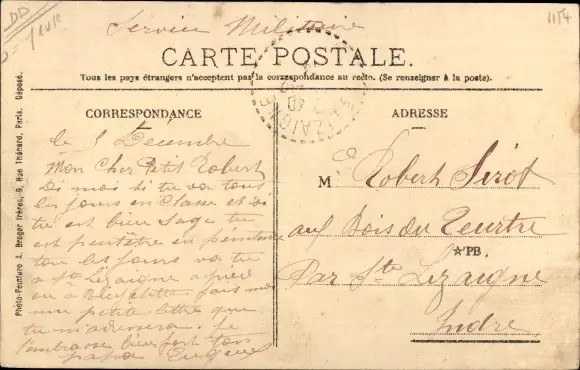 DD
1154
Service Militaire
CARTE POSTALE.
Tous les pays étrangers n'acceptent pas la correspondance au recto. (Se renseigner à la poste).
CORRESPONDANCE
le 5 Decémbre
Mon Cher Petit Robert
Di moi si tu va tous
les jours en Classe et si
tu est bien Sage tu
est peutêtre en pénitence
tous les jours va tu
a Ste Lizaigne a pied
ou à Bicyclette fais moi
une petite lettre que
tu m'adressera. Je
t'embrasse bien fort ton
papa Eugène
ADRESSE
M Robert Sirot
aux Bois du Teurtre
PB.
Par Ste Lizaigne
Indre
Photo-Peinture A. Breger frères, 9, Rue Thénard, Paris. Déposé.